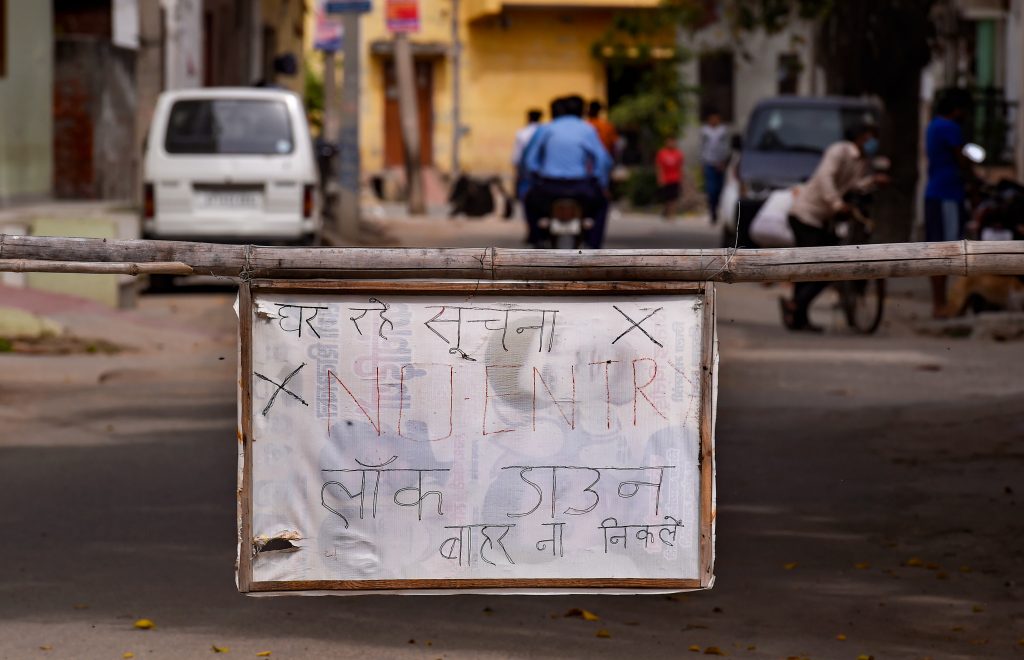 घर रहे सूचना X
X NO-ENTRY
लॉक डाउन
बाहर ना निकलें